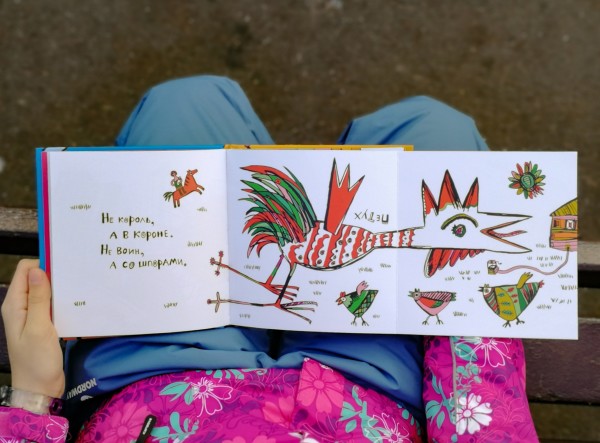 Не король,
а в короне.
Не воин,
а со шпорами.
ПЕТУХ
NORDWAY